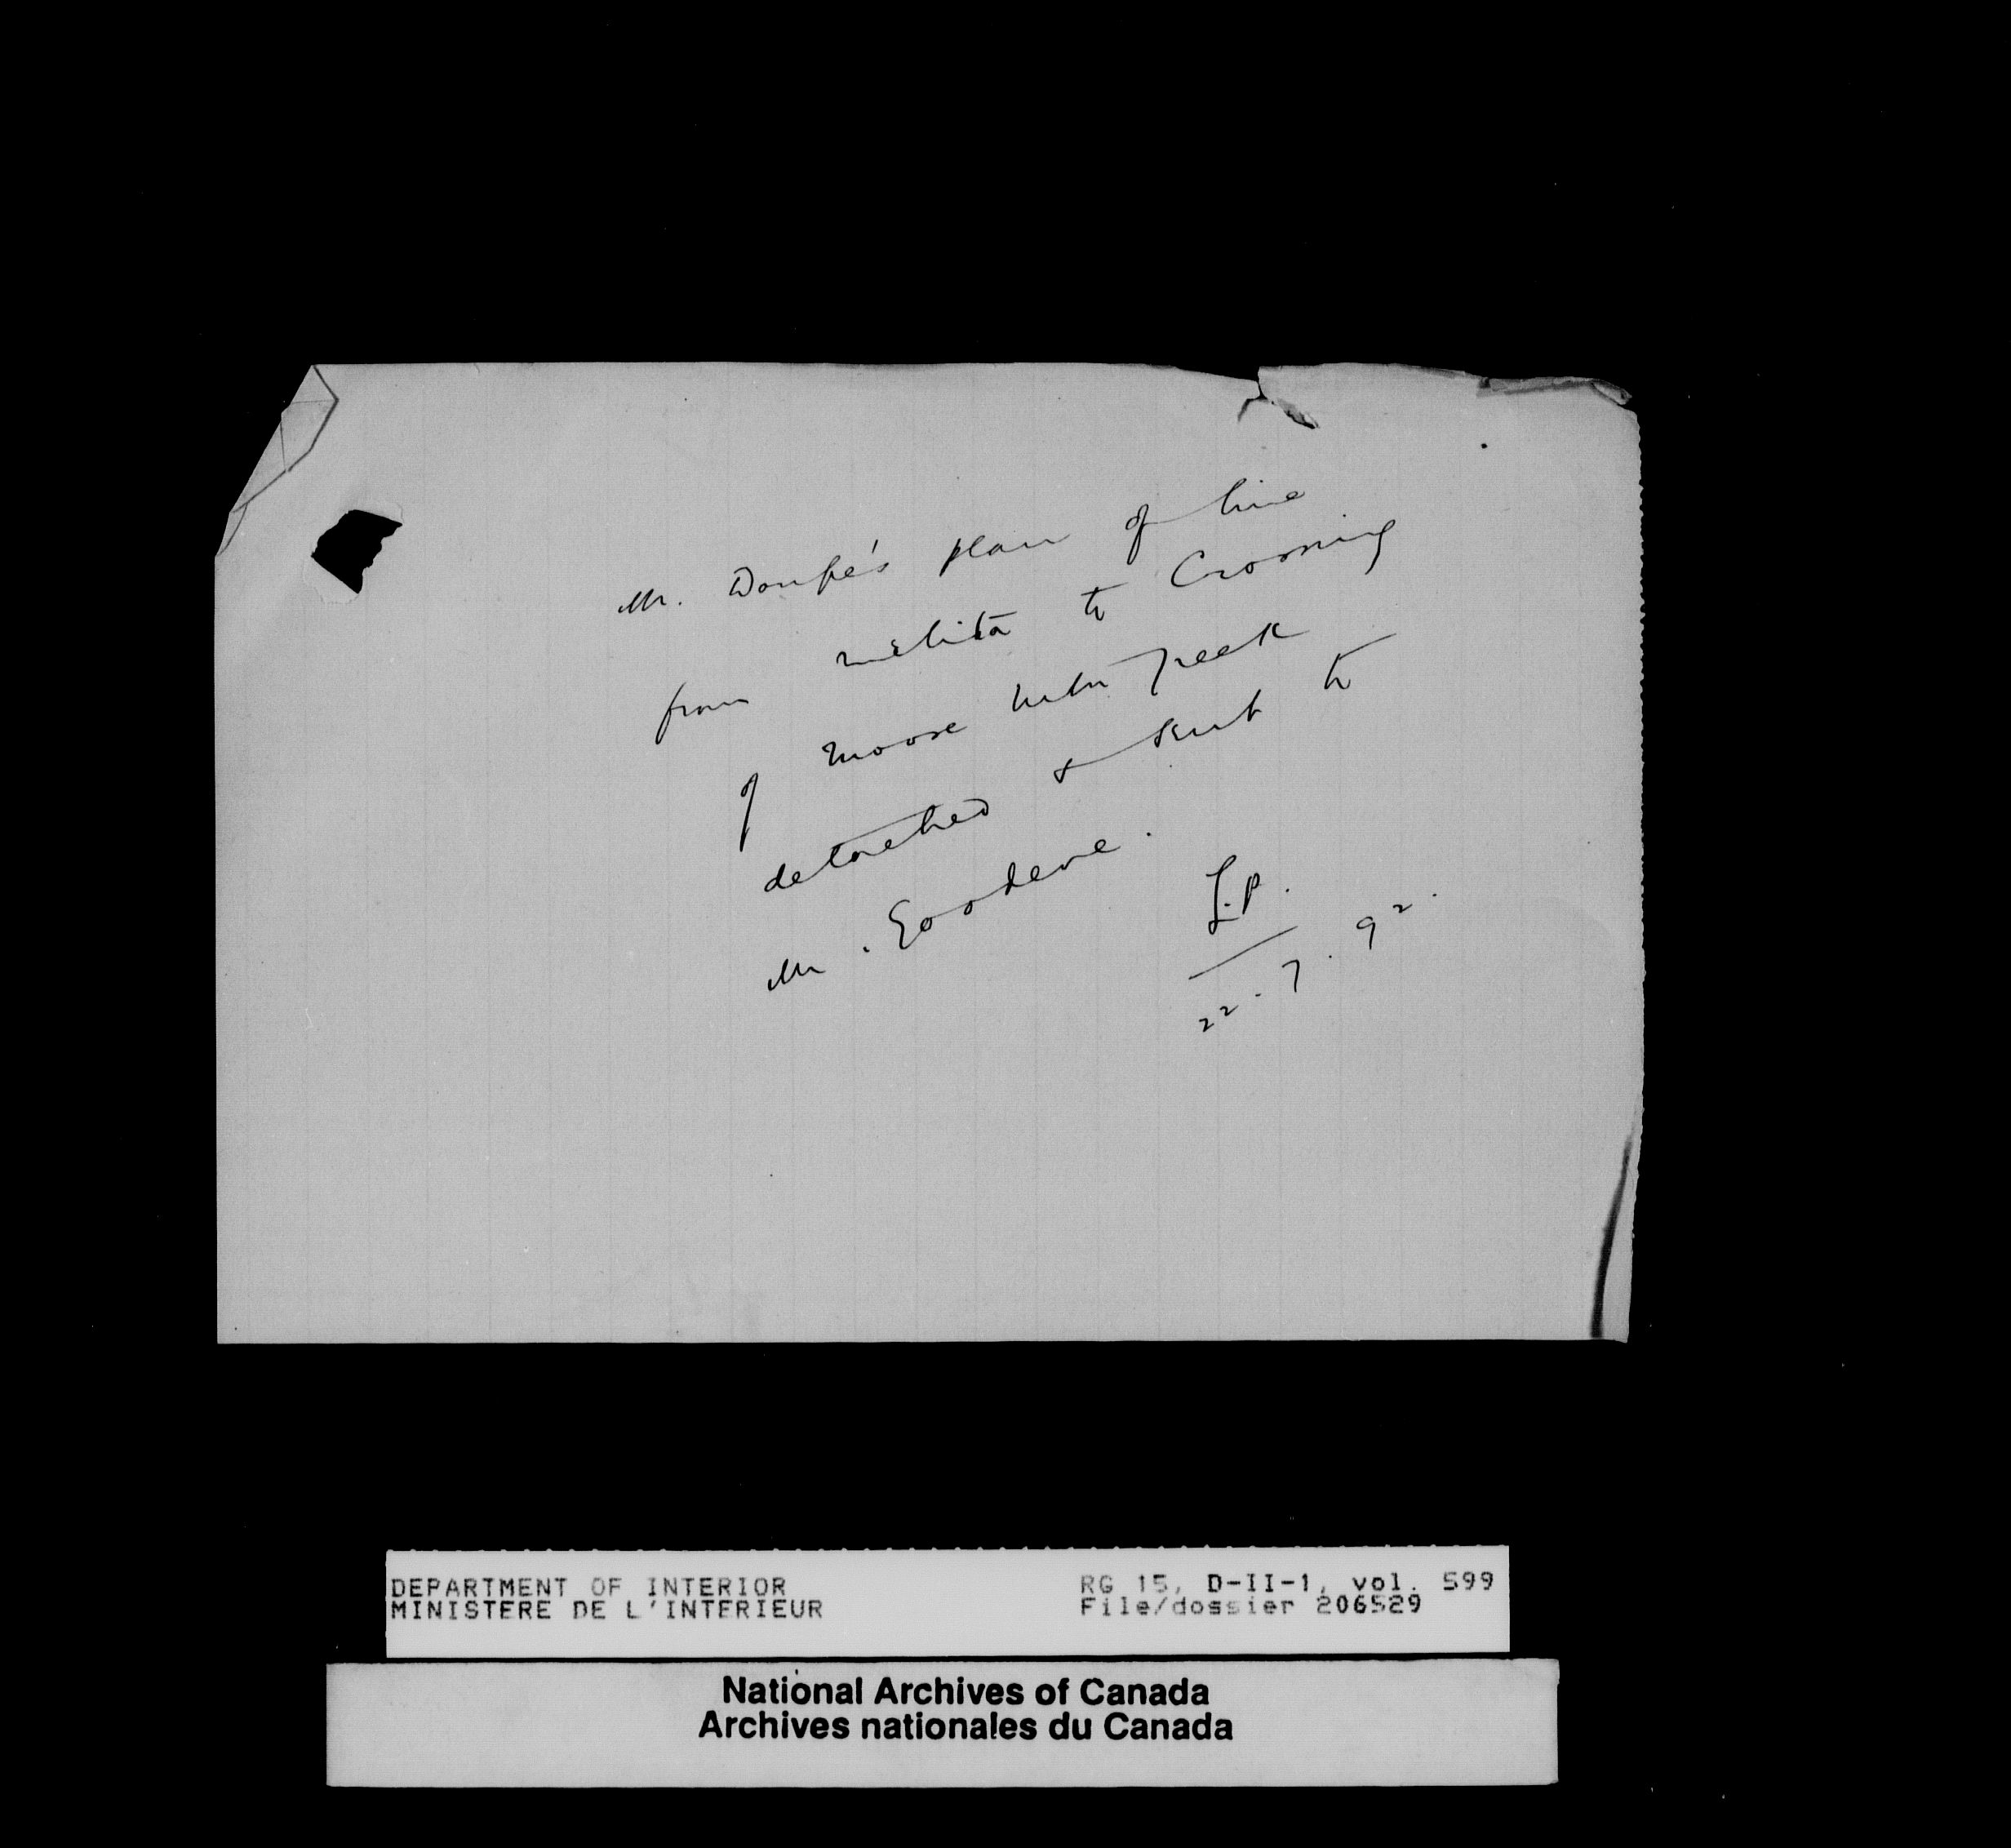 Mr. Doupe's plan of line
from Melita to Crossing
of Moose Mtn Creek
detached & sent to
Mr. Goodeve.
L.P.
22.7.92.
DEPARTMENT OF INTERIOR
MINISTERE DE L'INTERIEUR
RG 15, D-II-1, vol. 599
File/dossier 206529
National Archives of Canada
Archives nationales du Canada